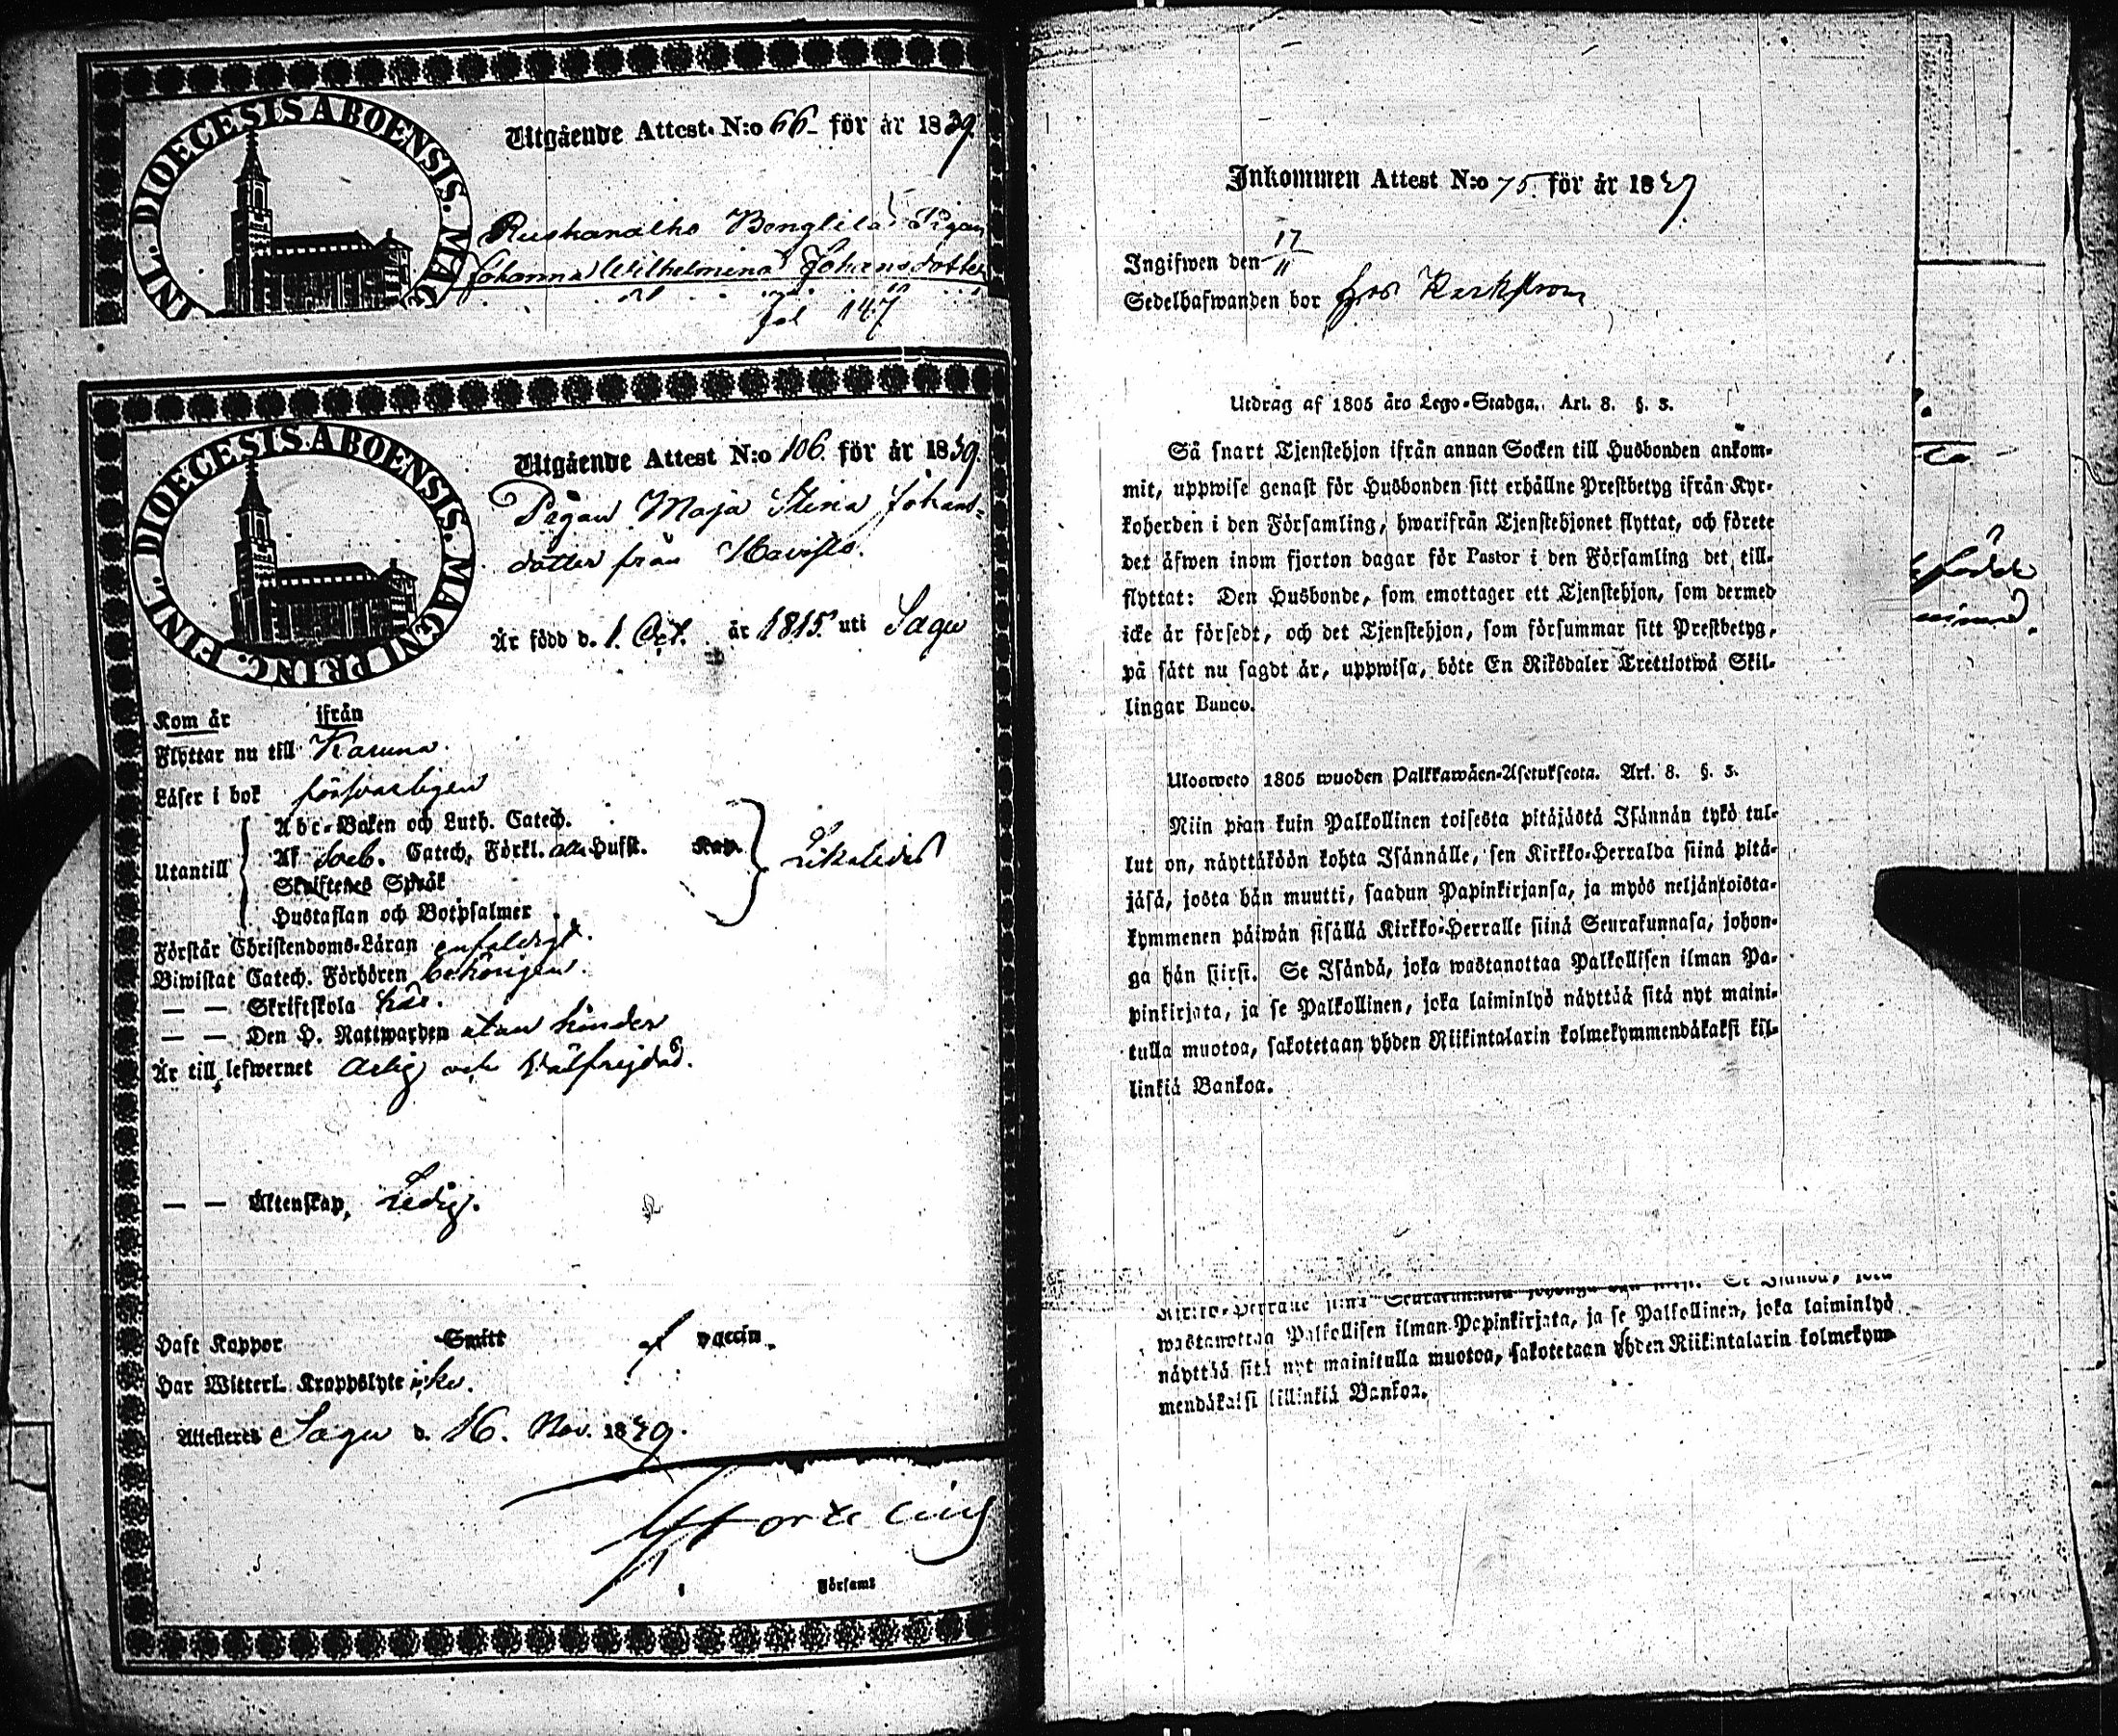 FINL. DIOECESIS ABOENSIS. MAG
Utgående Attest N:o 66 för år 1839
Ruskanalho Bengtilä Pigan
Johanna Wilhelmina Johansdotter
fol 147
FINL. DIOECESIS ABOENSIS. MAGNI PRINC.
Utgående Attest N:o 106. för år 1839.
Pigan Maja Stina Johans-
dotter från Havisto.
Är född d. 1. Oct. år 1815. uti Sagu
Kom år ifrån
Flyttar nu till Karuna.
Läser i bok försvarligen
Utantill
Abc-Boken och Luth. Catech.
Af Sveb. Catech. Förkl. alla Hufst. Kap.
Skriftenes Språk
Hustaflan och Botpsalmer
Likaledes
Förstår Christendoms-Läran enfaldigt.
Biwistat Catech. Förhören behörigen.
— — Skriftskola här.
— — Den H. Nattwarden utan hinder
Är till lefwernet ärlig och välfrejdad.
— — Äktenskap, Ledig.
Haft Koppor Smitt af vaccin.
Har Witterl. Kroppslyte icke.
Attesteres Sagu d. 16. Nov. 1839.
Församl
Inkommen Attest N:o 75. för år 1839
Ingifwen den 17/11
Sedelhafwanden bor hos
Utdrag af 1805 års Lego-Stadga. Art. 8. §. 3.
Så snart Tjenstehjon ifrån annan Socken till Husbonden ankom-
mit, uppwise genast för Husbonden sitt erhållne Prestbetyg ifrån Kyr-
koherden i den Församling, hwarifrån Tjenstehjonet flyttat, och förete
det äfwen inom fjorton dagar för Pastor i den Församling det till-
flyttat: Den Husbonde, som emottager ett Tjenstehjon, som dermed
icke är försedt, och det Tjenstehjon, som försummar sitt Prestbetyg,
på sätt nu sagdt är, uppwisa, böte En Riksdaler Trettiotwå Skil-
lingar Banco.
Ulosweto 1805 wuoden Palkkawäen-Asetuksesta. Art. 8. §. 3.
Niin pian kuin Palkollinen toisesta pitäjästä Isännän tykö tul-
lut on, näyttäköön kohta Isännälle, sen Kirkko-Herralda siinä pitä-
jäsä, josta hän muutti, saadun Papinkirjansa, ja myös neljäntoista-
kymmenen päiwän sisällä Kirkko-Herralle siinä Seurakunnasa, johon-
ga hän siirsi. Se Isändä, joka wastanottaa Palkollisen ilman Pa-
pinkirjata, ja se Palkollinen, joka laiminlyö näyttää sitä nyt maini-
tulla muotoa, sakotetaan yhden Riikintalarin kolmekymmendäkaksi kil-
linkiä Bankoa.
Kirkko-Herralle siinä Seurakunnasa johonga hän siirsi. Se Isändä, joka
wastanottaa Palkollisen ilman Papinkirjata, ja se Palkollinen, joka laiminlyö
näyttää sitä nyt mainitulla muotoa, sakotetaan yhden Riikintalarin kolmekym-
mendäkaksi killinkiä Bankoa.